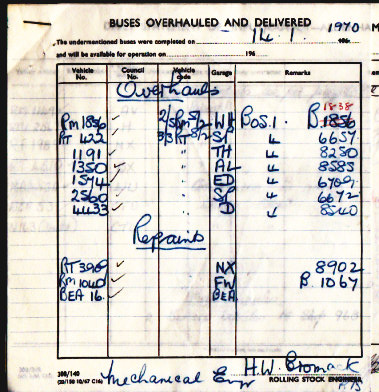 BUSES OVERHAULED AND DELIVERED
The undermentioned buses were completed on 14. 1. 1970 196
and will be available for operation on 196
Vehicle No. Council No. Vehicle code Garage Remarks
Overhauls
1838
RM 1856 ✓ WH Bos. 1. B. 1856
RT 422 ✓ SP " 6657
1191 ✓ " TH " 8250
1350 ✓ " AL " 8585
1594 ✓ " ED " 6709
2560 ✓ " SP " 6672
4433 ✓ " D " 8540
Repaints
RT 3909 ✓ NX 8902
RM 1040 ✓ FW B. 1067
BEA 16. ✓ BEA
H.W. Bromack
ROLLING STOCK ENGINEER
Mechanical Eng